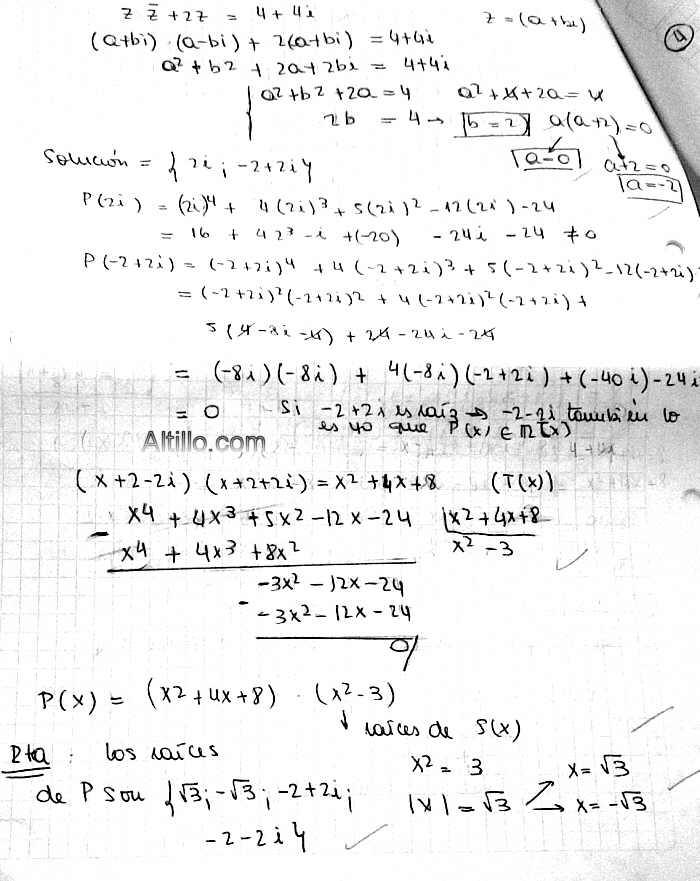 z z̄ + 2z = 4 + 4i z = (a+bi) 4
(a+bi) · (a-bi) + 2(a+bi) = 4+4i
a² + b2 + 2a + 2bi = 4+4i
{ a²+b² +2a = 4 a² + 4 + 2a = 4
2b = 4 → b = 2 a(a+2) = 0
Solución = { 2i ; -2+2i } a=0 a+2=0
a=-2
P(2i) = (2i)⁴ + 4(2i)³ + 5(2i)² - 12(2i) - 24
= 16 + 4 2³ -i +(-20) - 24i - 24 ≠ 0
P(-2+2i) = (-2+2i)⁴ + 4(-2+2i)³ + 5(-2+2i)² -12(-2+2i)
= (-2+2i)²(-2+2i)² + 4(-2+2i)²(-2+2i) +
5(4-8i-4) + 24 - 24i - 24
= (-8i)(-8i) + 4(-8i)(-2+2i) + (-40i) - 24i
= 0 Si -2+2i es raíz → -2-2i también lo
es ya que P(x) ∈ R[x]
Altillo.com
(x+2-2i) (x+2+2i) = x² + 4x + 8 (T(x))
x4 + 4x³ + 5x² - 12x - 24 | x² + 4x + 8
- x4 + 4x³ + 8x² x² - 3
-3x² - 12x - 24
- -3x² - 12x - 24
0
P(x) = (x2 + 4x + 8) · (x² - 3)
↓ raíces de S(x)
Rta : los raíces x² = 3 x = √3
de P son {√3 ; -√3 ; -2+2i ; |x| = √3 → x = -√3
-2-2i }